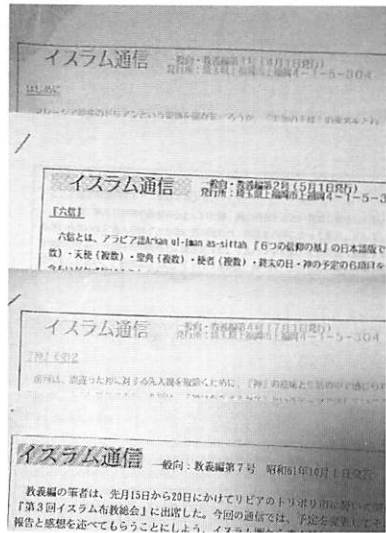 イスラム通信 一般向・教義編第1号(4月1日発行)
発行所:埼玉県上福岡市上福岡4-1-5-304
はじめに
イスラム通信 一般向・教義編第2号(5月1日発行)
発行所:埼玉県上福岡市上福岡4-1-5-3
『六信』
六信とは、アラビア語Arkan ul-Iman as-sittah『6つの信仰の基』の日本語版で
数)・天使(複数)・聖典(複数)・使者(複数)・終末の日・神の予定の6項目を
イスラム通信 一般向・教義編第4号(7月1日発行)
発行所:埼玉県上福岡市上福岡4-1-5-304
『神』その2
前号は、間違った神に対する先入観を取除くために、『神』の意味と
イスラム通信 一般向:教義編第7号 昭和61年10月1日発行
教義編の筆者は、先月15日から20日にかけてリビアのトリポリ市に於いて
『第3回イスラム布教総会』に出席した。今回の通信では、予定を変更して
報告と感想を述べてもらうことにしよう。